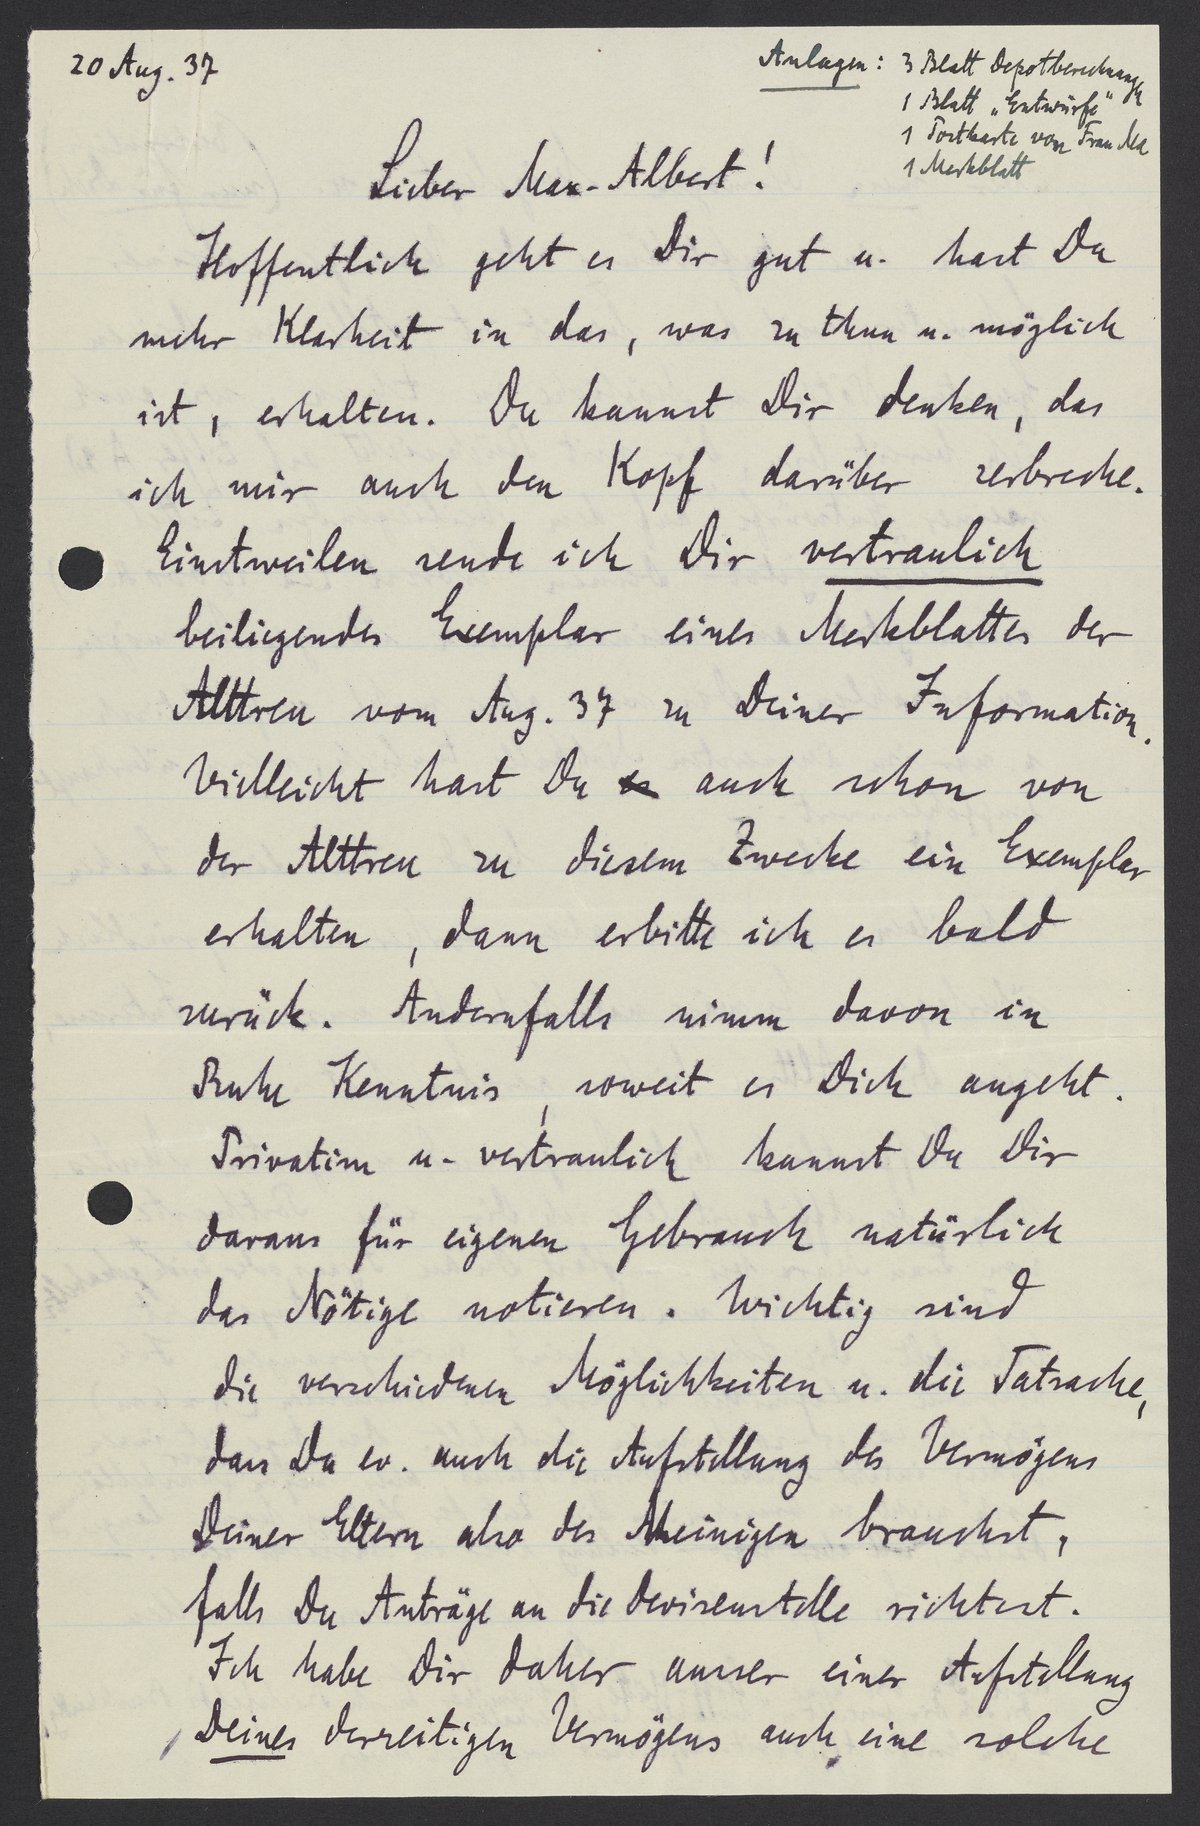 20 Aug. 37
Anlagen: 3 Blatt Depotberechnungen
1 Blatt „Entwürfe"
1 Postkarte von Frau Ma
1 Merkblatt
Lieber Max-Albert!
Hoffentlich geht es Dir gut u. hast Du
mehr Klarheit in das, was zu thun u. möglich
ist, erhalten. Du kannst Dir denken, das
ich mir auch den Kopf darüber zerbreche.
Einstweilen sende ich Dir vertraulich
beiliegendes Exemplar eines Merkblattes der
Alttreu vom Aug. 37 zu Deiner Information.
Vielleicht hast Du auch schon von
der Alttreu zu diesem Zwecke ein Exemplar
erhalten, dann erbitte ich es bald
zurück. Andernfalls nimm davon in
Ruhe Kenntnis, soweit es Dich angeht.
Privatim u. vertraulich kannst Du Dir
daraus für eigenen Gebrauch natürlich
das Nötige notieren. Wichtig sind
die verschiedenen Möglichkeiten u. die Tatsache,
dass Du ev. auch die Aufstellung des Vermögens
Deiner Eltern also des Meinigen brauchst,
falls Du Anträge an die Devisenstelle richtest.
Ich habe Dir daher ausser einer Aufstellung
Deines derzeitigen Vermögens auch eine solche